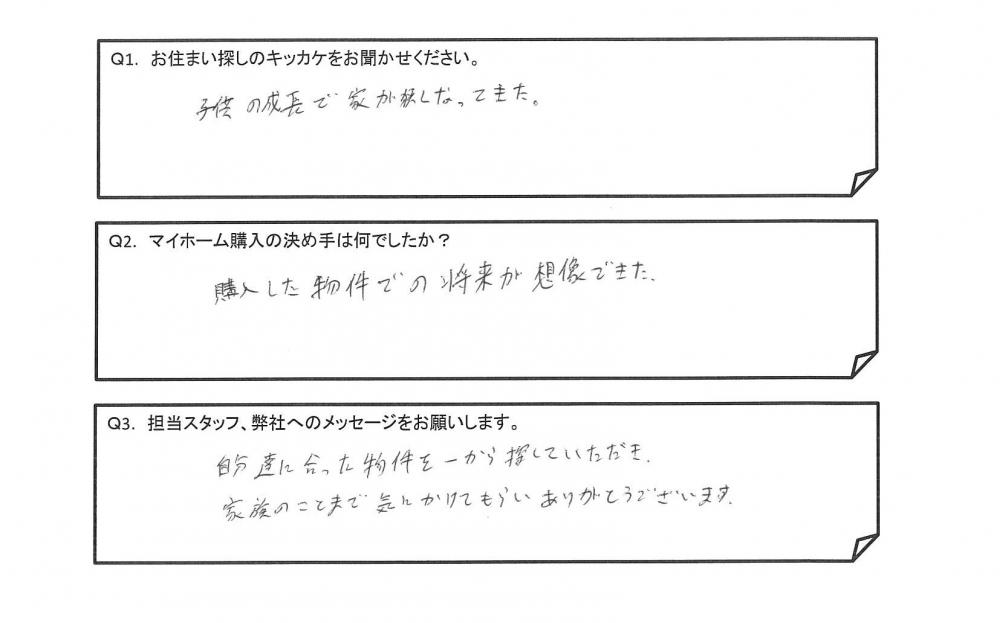 Q1. お住まい探しのキッカケをお聞かせください。
子供の成長で家が狭くなってきた。
Q2. マイホーム購入の決め手は何でしたか？
購入した物件での将来が想像できた.
Q3. 担当スタッフ、弊社へのメッセージをお願いします。
自分達に合った物件を一から探していただき.
家族のことまで気にかけてもらいありがとうございます.